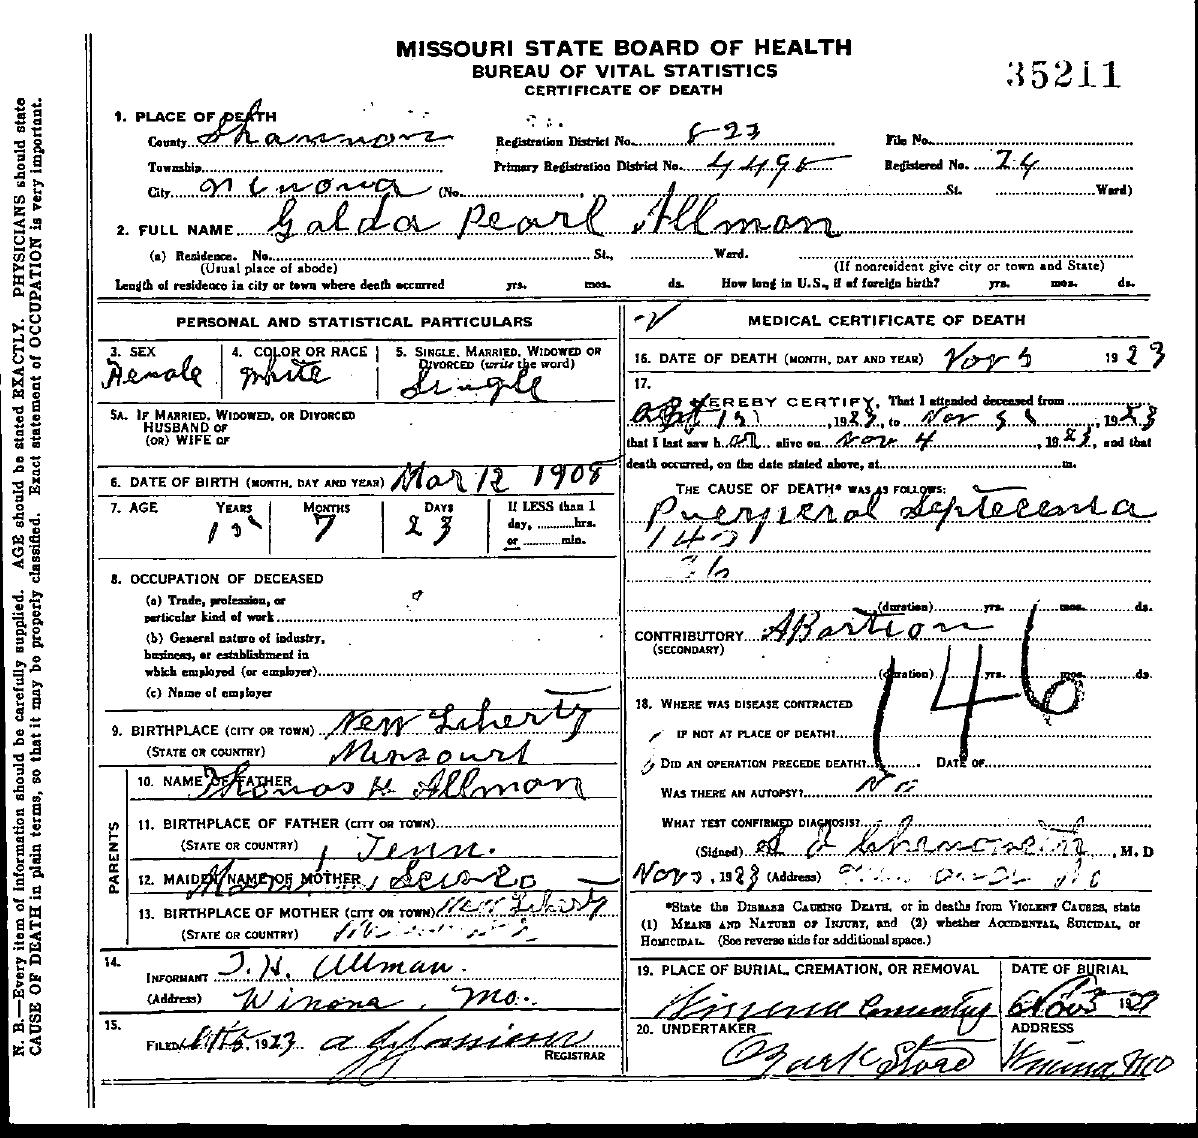 MISSOURI STATE BOARD OF HEALTH
BUREAU OF VITAL STATISTICS
CERTIFICATE OF DEATH
35211
1. PLACE OF DEATH
County Shannon Registration District No. 823 File No.
Township Primary Registration District No. 4495 Registered No. 24
City Winona (No. , St. Ward)
2. FULL NAME Galda Pearl Allman
(a) Residence. No. St., Ward.
(Usual place of abode) (If nonresident give city or town and State)
Length of residence in city or town where death occurred yrs. mos. ds. How long in U.S., if of foreign birth? yrs. mos. ds.
PERSONAL AND STATISTICAL PARTICULARS
3. SEX 4. COLOR OR RACE 5. SINGLE, MARRIED, WIDOWED OR DIVORCED (write the word)
Female White Single
5A. IF MARRIED, WIDOWED, OR DIVORCED
HUSBAND OF
(OR) WIFE OF
6. DATE OF BIRTH (MONTH, DAY AND YEAR) Mar 12 1908
7. AGE YEARS MONTHS DAYS If LESS than 1
day, hrs.
or min.
15 7 23
8. OCCUPATION OF DECEASED
(a) Trade, profession, or
particular kind of work
(b) General nature of industry,
business, or establishment in
which employed (or employer)
(c) Name of employer
9. BIRTHPLACE (CITY OR TOWN) New Liberty
(STATE OR COUNTRY) Missouri
PARENTS
10. NAME OF FATHER Thomas H Allman
11. BIRTHPLACE OF FATHER (CITY OR TOWN)
(STATE OR COUNTRY) Tenn.
12. MAIDEN NAME OF MOTHER
13. BIRTHPLACE OF MOTHER (CITY OR TOWN) New Liberty
(STATE OR COUNTRY)
14.
INFORMANT T. H. Allman.
(Address) Winona, Mo.
15.
FILED 1923
REGISTRAR
MEDICAL CERTIFICATE OF DEATH
16. DATE OF DEATH (MONTH, DAY AND YEAR) Nov 5 1923
17.
I HEREBY CERTIFY, That I attended deceased from
1923, to Nov 5, 1923
that I last saw her alive on Nov 4, 1923, and that
death occurred, on the date stated above, at m.
THE CAUSE OF DEATH* WAS AS FOLLOWS:
Puerperal Septecemia
(duration) yrs. mos. ds.
CONTRIBUTORY Abortion
(SECONDARY)
(duration) yrs. mos. ds.
146
18. WHERE WAS DISEASE CONTRACTED
IF NOT AT PLACE OF DEATH?
DID AN OPERATION PRECEDE DEATH? DATE OF
WAS THERE AN AUTOPSY? No
WHAT TEST CONFIRMED DIAGNOSIS?
(Signed) , M. D
Nov 5, 1923 (Address)
*State the DISEASE CAUSING DEATH, or in deaths from VIOLENT CAUSES, state
(1) MEANS AND NATURE OF INJURY, and (2) whether ACCIDENTAL, SUICIDAL, or
HOMICIDAL. (See reverse side for additional space.)
19. PLACE OF BURIAL, CREMATION, OR REMOVAL DATE OF BURIAL
Winona Cemetery
20. UNDERTAKER ADDRESS
Ozark Store Winona, Mo
N. B.—Every item of information should be carefully supplied. AGE should be stated EXACTLY. PHYSICIANS should state
CAUSE OF DEATH in plain terms, so that it may be properly classified. Exact statement of OCCUPATION is very important.